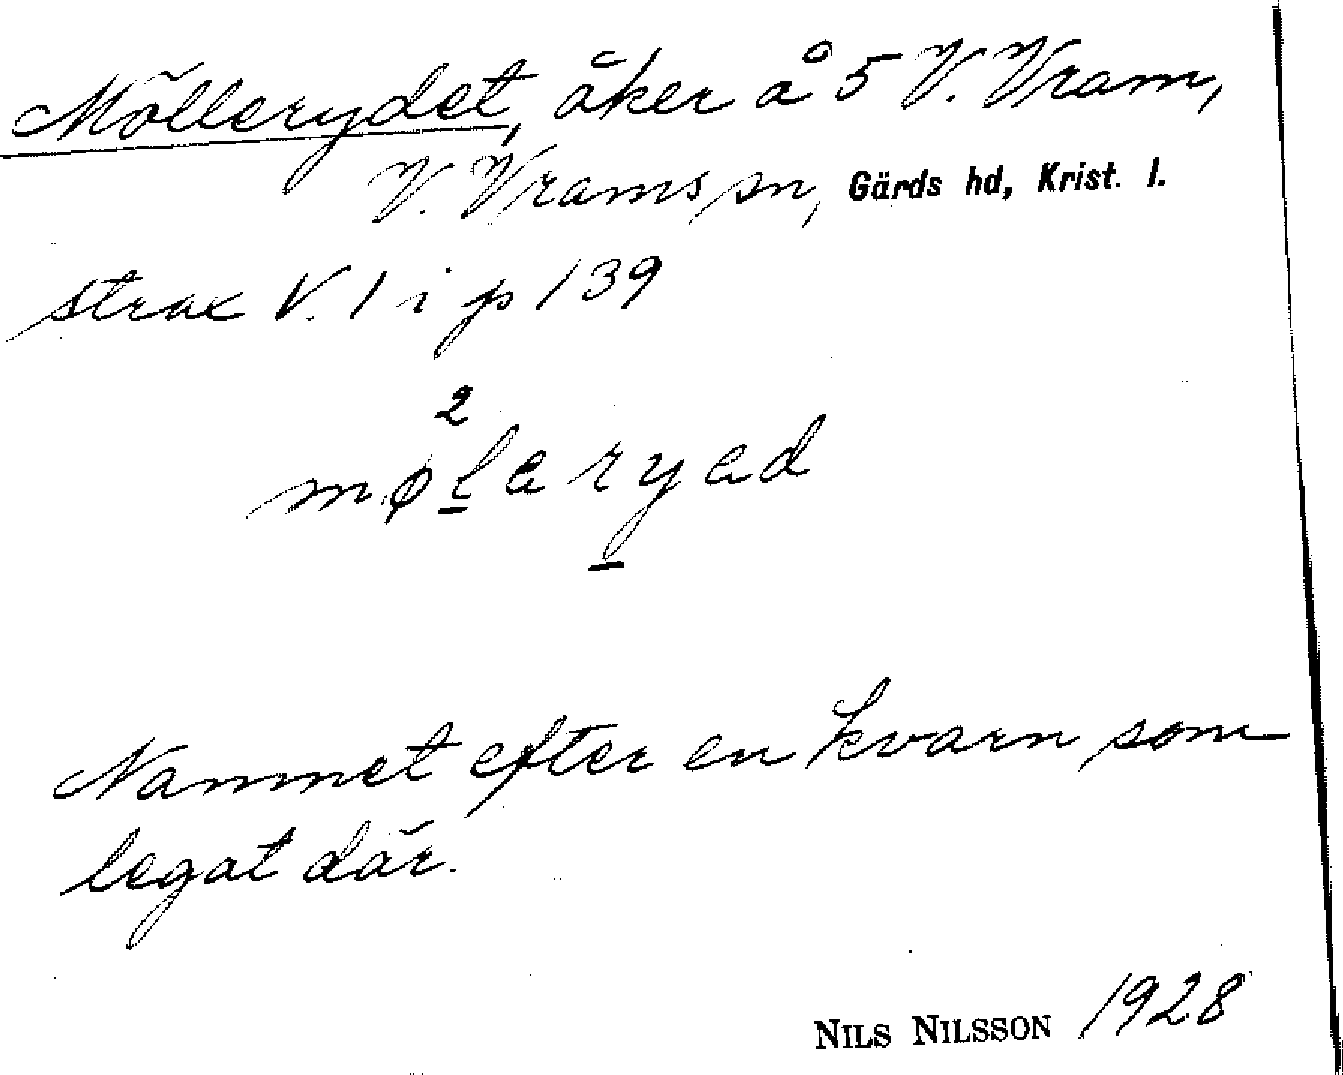 Möllerydet, åker å 5 V. Vram,
V. Vrams sn, Gärds hd, Krist. l.
strax V. l i p 139
2
møleryed
Namnet efter en kvarn som
legat där.
NILS NILSSON 1928